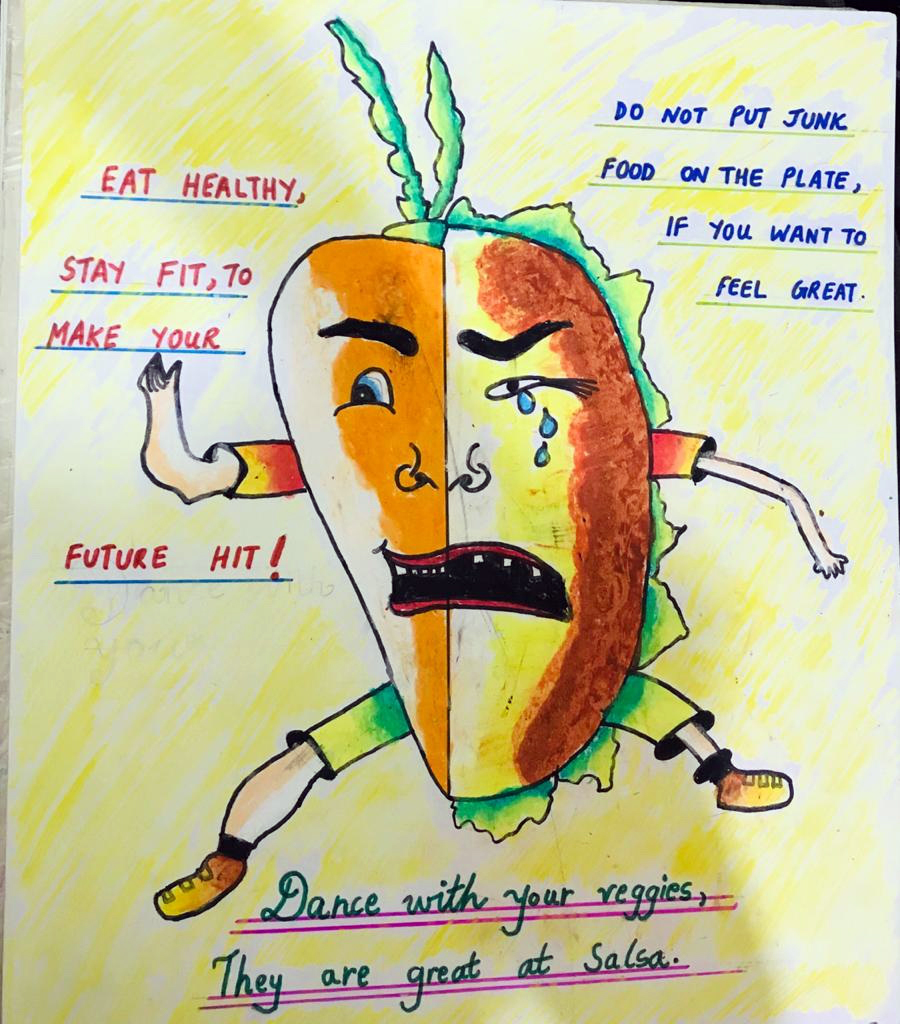 EAT HEALTHY,
STAY FIT, TO
MAKE YOUR
FUTURE HIT!
DO NOT PUT JUNK
FOOD ON THE PLATE,
IF YOU WANT TO
FEEL GREAT.
Dance with your veggies,
They are great at Salsa.